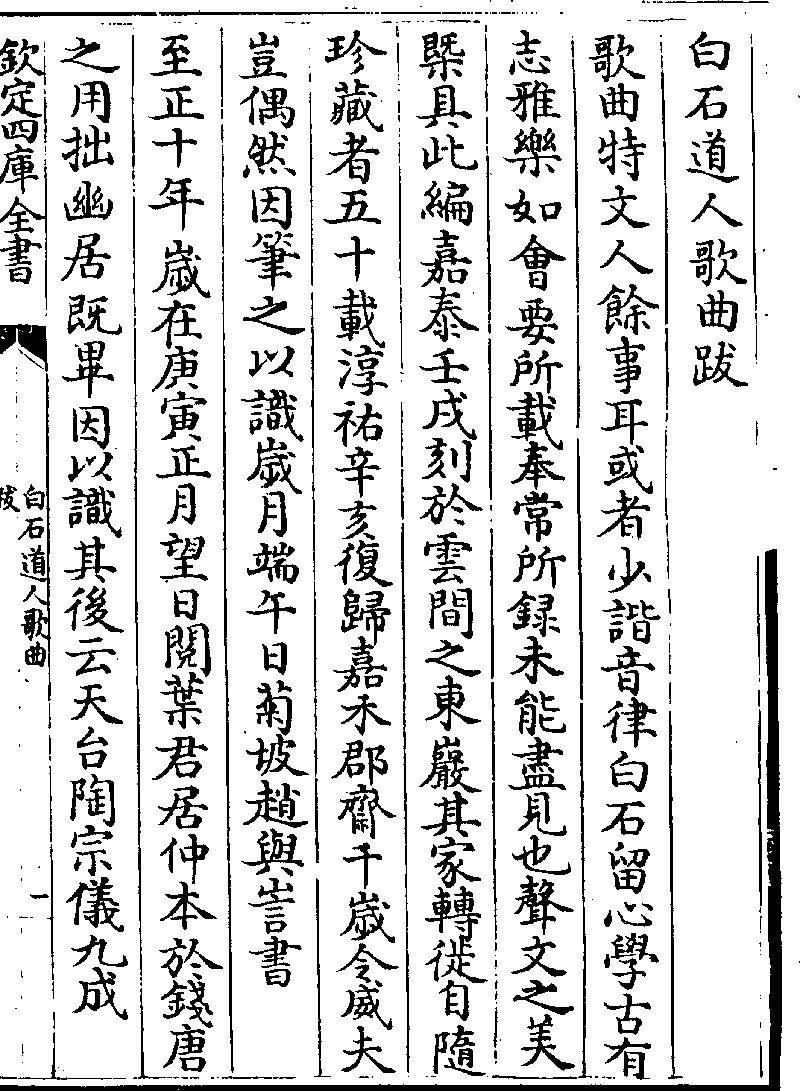 白石道人歌曲跋
歌曲特文人餘事耳或者少諧音律白石留心學古有
志雅樂如會要所載奉常所録未能盡見也聲文之美
槩具此編嘉泰壬戌刻於雲間之東巖其家轉徙自隨
珍藏者五十載淳祐辛亥復歸嘉禾郡齋千歲令威夫
豈偶然因筆之以識歲月端午日菊坡趙與訔書
至正十年歲在庚寅正月望日閱葉君居仲本於錢唐
之用拙幽居既畢因以識其後云天台陶宗儀九成
欽定四庫全書
白石道人歌曲
跋
一